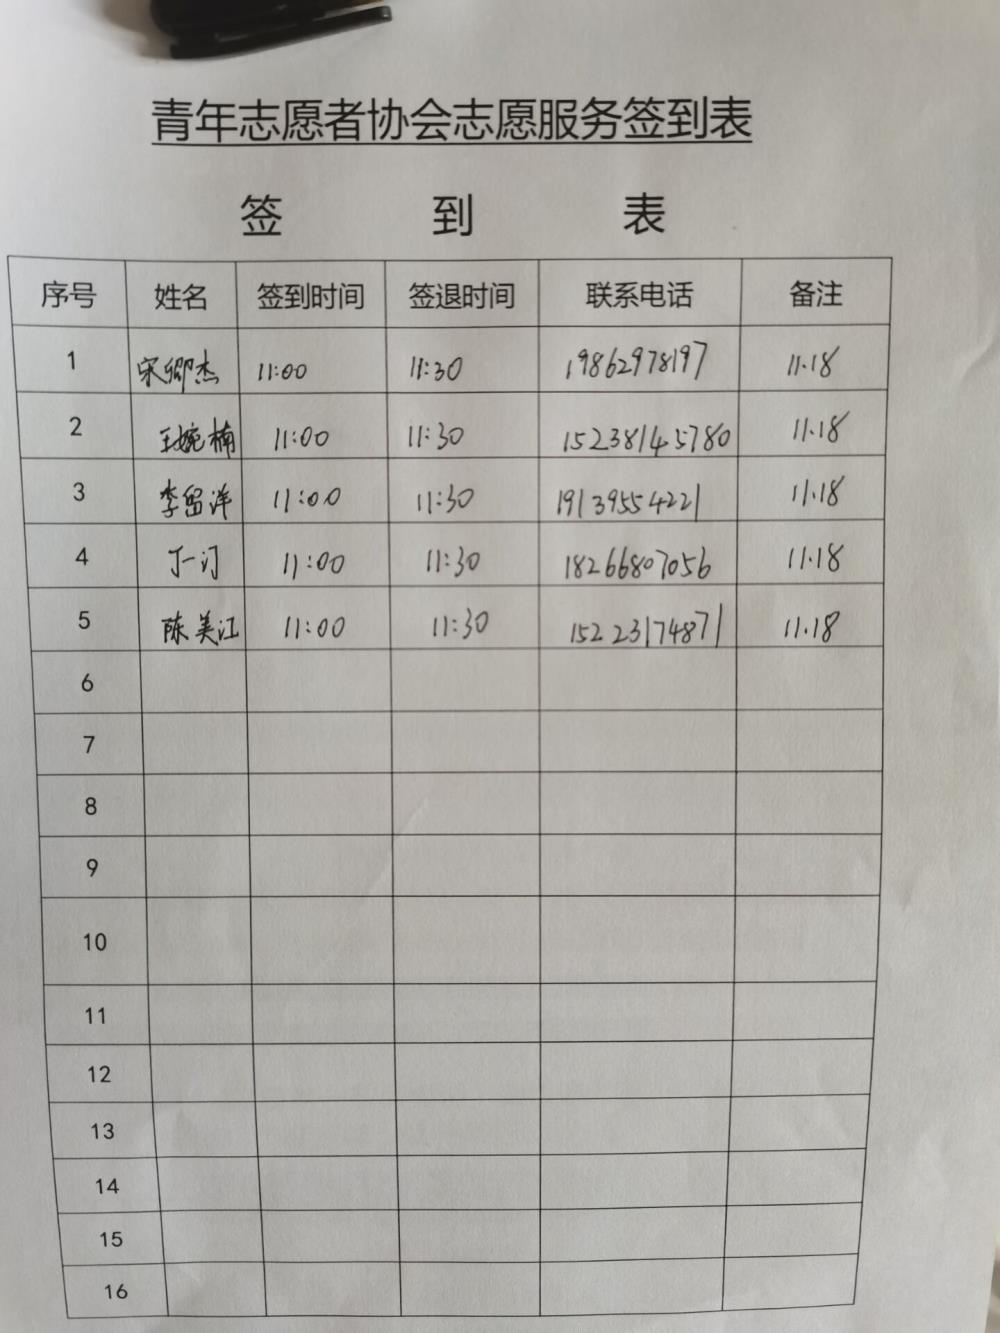 青年志愿者协会志愿服务签到表
签 到 表
序号 姓名 签到时间 签退时间 联系电话 备注
1 宋卿杰 11:00 11:30 19862978197 11.18
2 王婉楠 11:00 11:30 15238145780 11.18
3 李留洋 11:00 11:30 19139554221 11.18
4 丁一订 11:00 11:30 18266807056 11.18
5 陈美江 11:00 11:30 15223174871 11.18
6
7
8
9
10
11
12
13
14
15
16